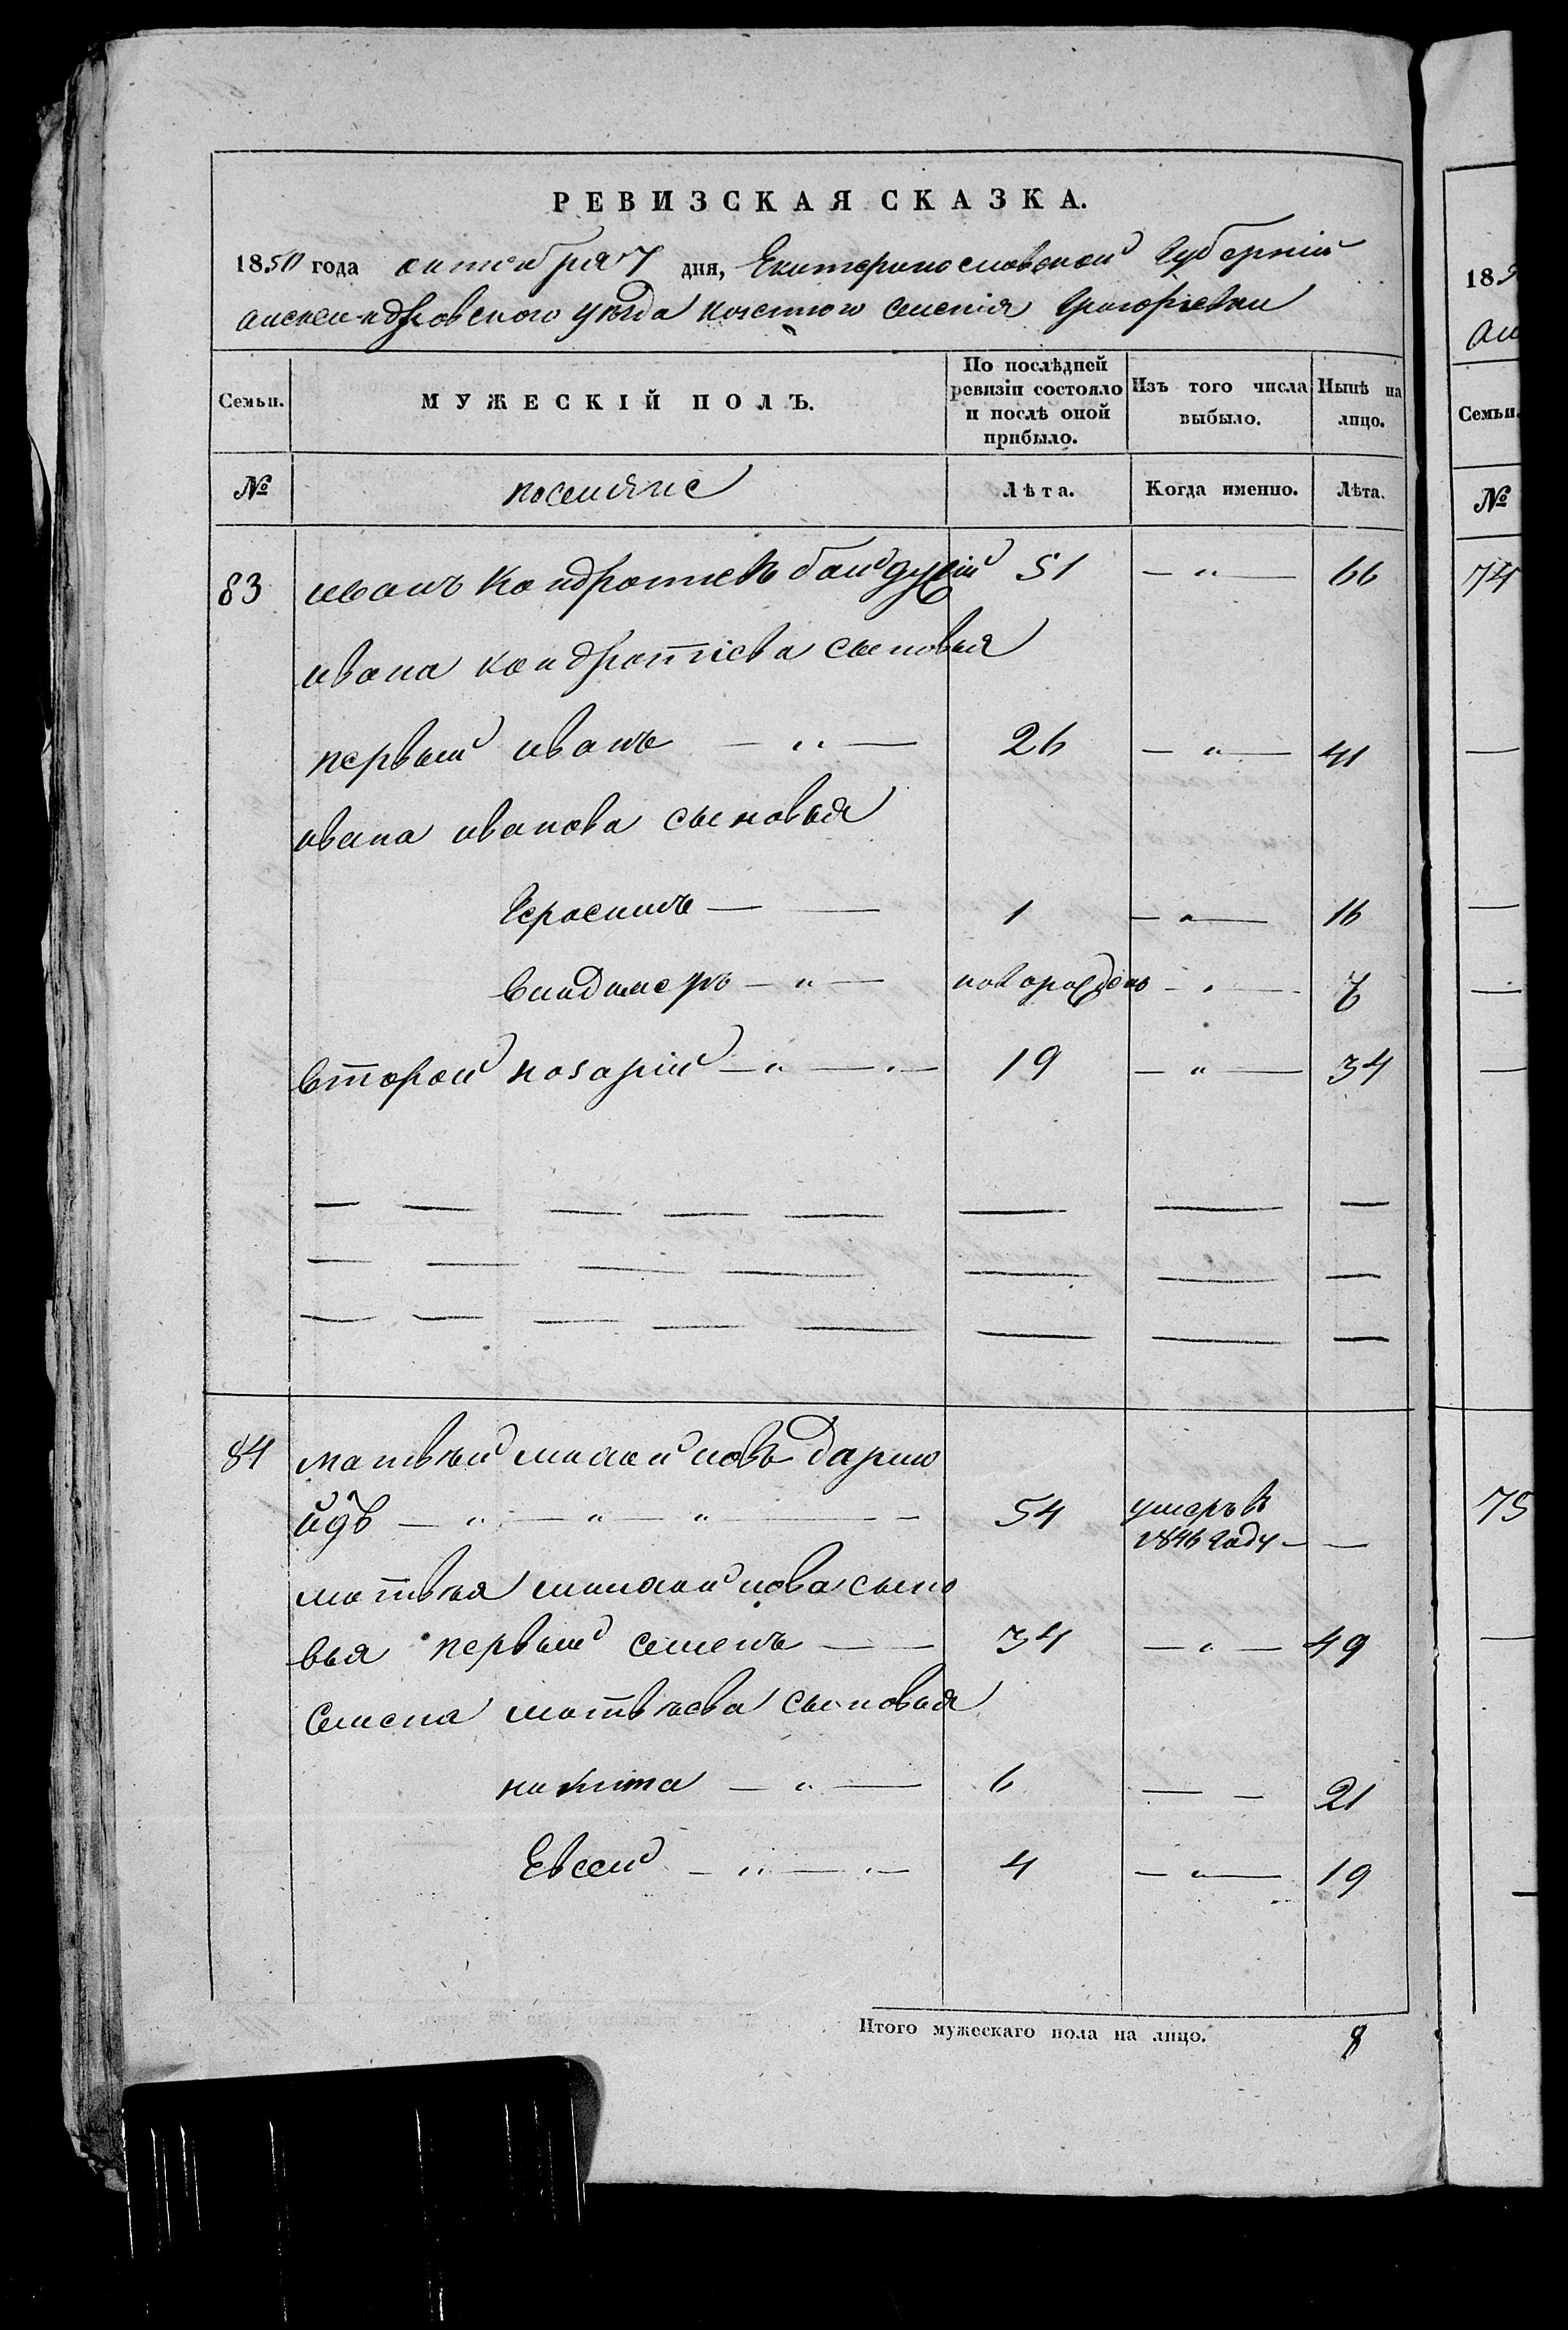 РЕВИЗСКАЯ СКАЗКА.
1850 года октября 7 дня, Екатеринославской Губернии
александровского уезда казенного селения Григорьевки
Семьи. МУЖЕСКІЙ ПОЛЪ. По послѣдней ревизіи состояло и послѣ оной прибыло. Изъ того числа выбыло. Нынѣ на лицо.
№ поселяне Лѣта. Когда именно. Лѣта.
83 иванъ Кондратьевъ 51 — " — 66
ивана кондратіева сыновья
первый иванъ — " — 26 — " — 41
ивана иванова сыновья
Герасимъ — — 1 — " — 16
Владимеръ — " — новорожденъ — " — 7
второй назарій — " — " — 19 — " — 34
84 матвѣй
— " — " — " — 54 умеръ в
1846 году — —
матвѣя сыно
вья первый семенъ — — 34 — " — 49
Семена матвѣева сыновья
никита — " — 6 — — 21
Евсей — " — " — 4 — " — 19
Итого мужескаго пола на лицо. 8
185
Ал
Семьи.
№
74
75